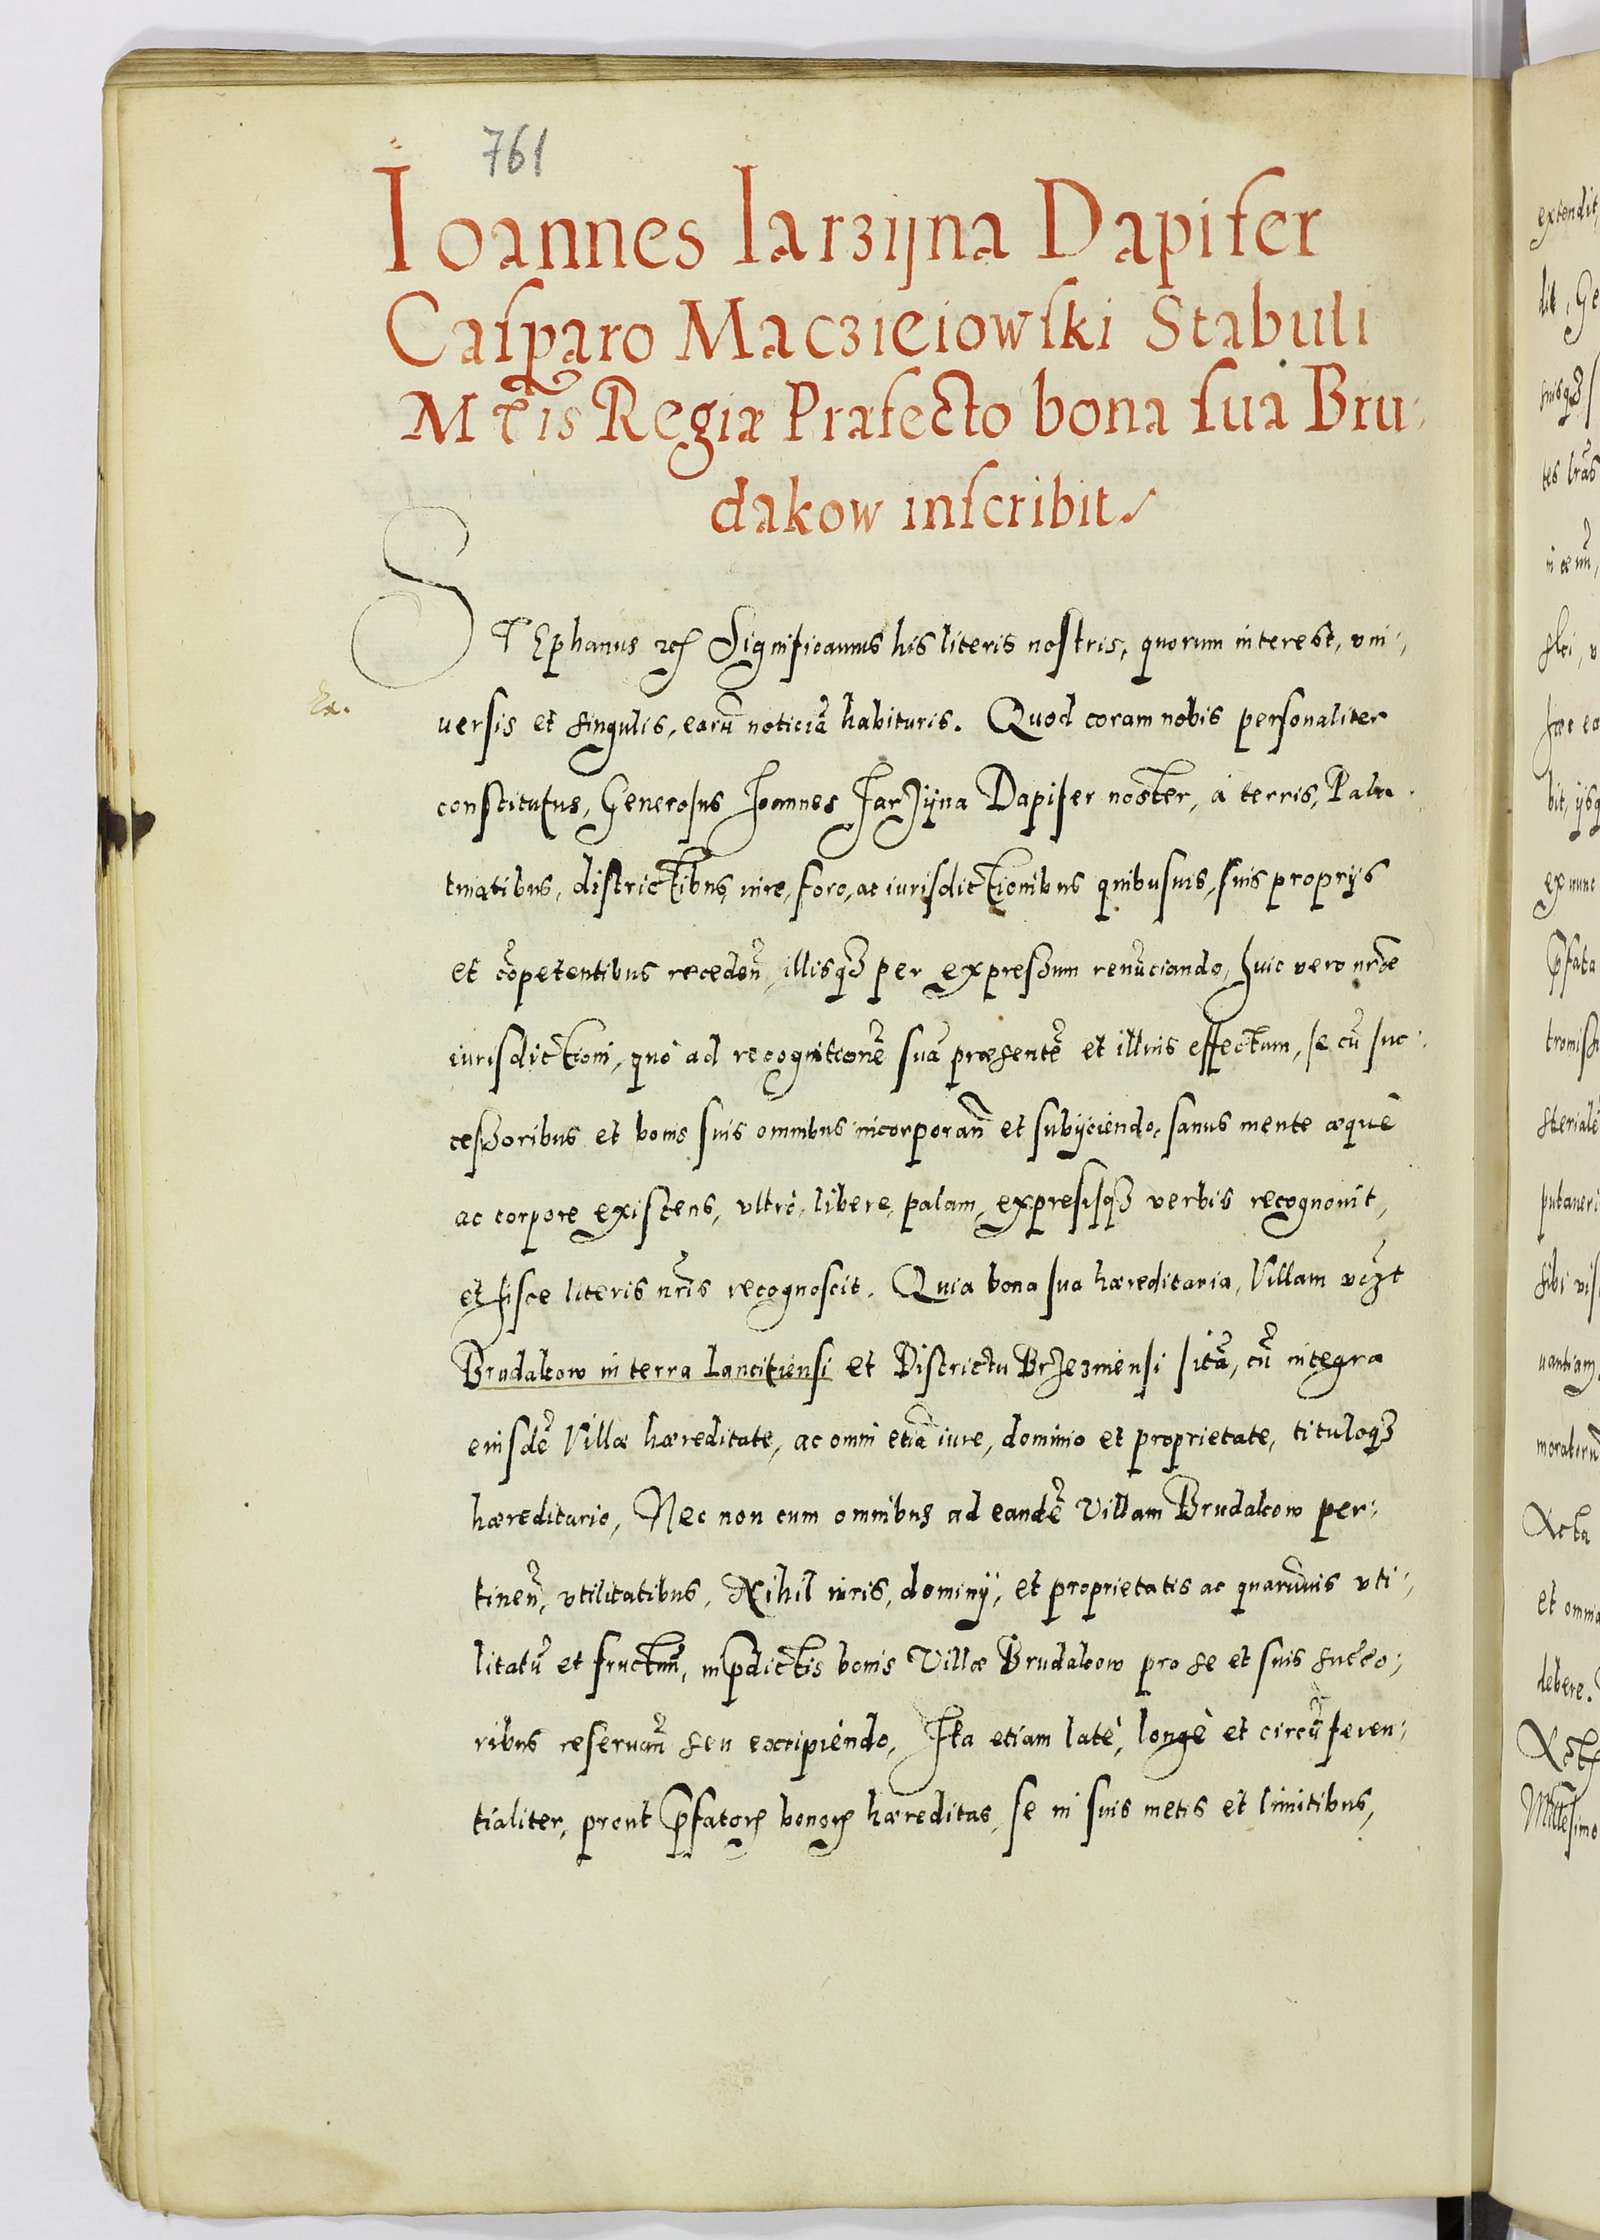 761
Ioannes Iarzÿna Dapifer
Caſparo Maczieiowſki Stabuli
Mt̃is Regiæ Præfecto bona ſua Bru:
dakow inſcribit
STEphanus etc̃ Significamus his literis noſtris, quorum interest, vni:
uersis et singulis, earũ noticiã habituris. Quod coram nobis personaliter
conſtitutus, Generoſus Joannes Jarzÿna Dapifer noster, à terris, Pala:
tinatibus, diſtrictibus, iure, foro, ac iurisdictionibus quibusuis, ſuis proprijs
et cõpetentibus recedeñ, illisqꝫ per expreſsum renũciando, huic vero nr̃æ
iurisdictioni, quò ad recognitionẽ ſuã præsentẽ et illius effectum, ſe cũ ſuc:
ceſsoribus et bonis ſuis omnibus incorporañ et ſubijciendo, sanus mente æquè
ac corpore exiſtens, vltrò, libere, palam, expreſsisqꝫ verbis recognouit,
et hisce literis nr̃is recognoscit. Quia bona ſua hæreditaria, Villam vcꝫt
Brudakow in terra Lancitiensi et Diſtrictu Brzezinensi ſitã, cũ integra
eiusdẽ Villæ hæreditate, ac omni etiã iure, dominio et proprietate, tituloqꝫ
hæreditario, Nec non cum omnibus ad eandẽ Villam Brudakow per:
tineñ, vtilitatibus, Nihil iuris, dominij, et proprietatis ac quarũuis vti:
litatũ et fructuũ, in p̃dictis bonis Villæ Brudakow pro se et ſuis succo:
ribus reseruañ seu excipiendo, Ita etiam latè, longè et circũferen:
tialiter, prout p̃fatoꝝ bonoꝝ hæreditas, ſe in ſuis metis et limitibus,